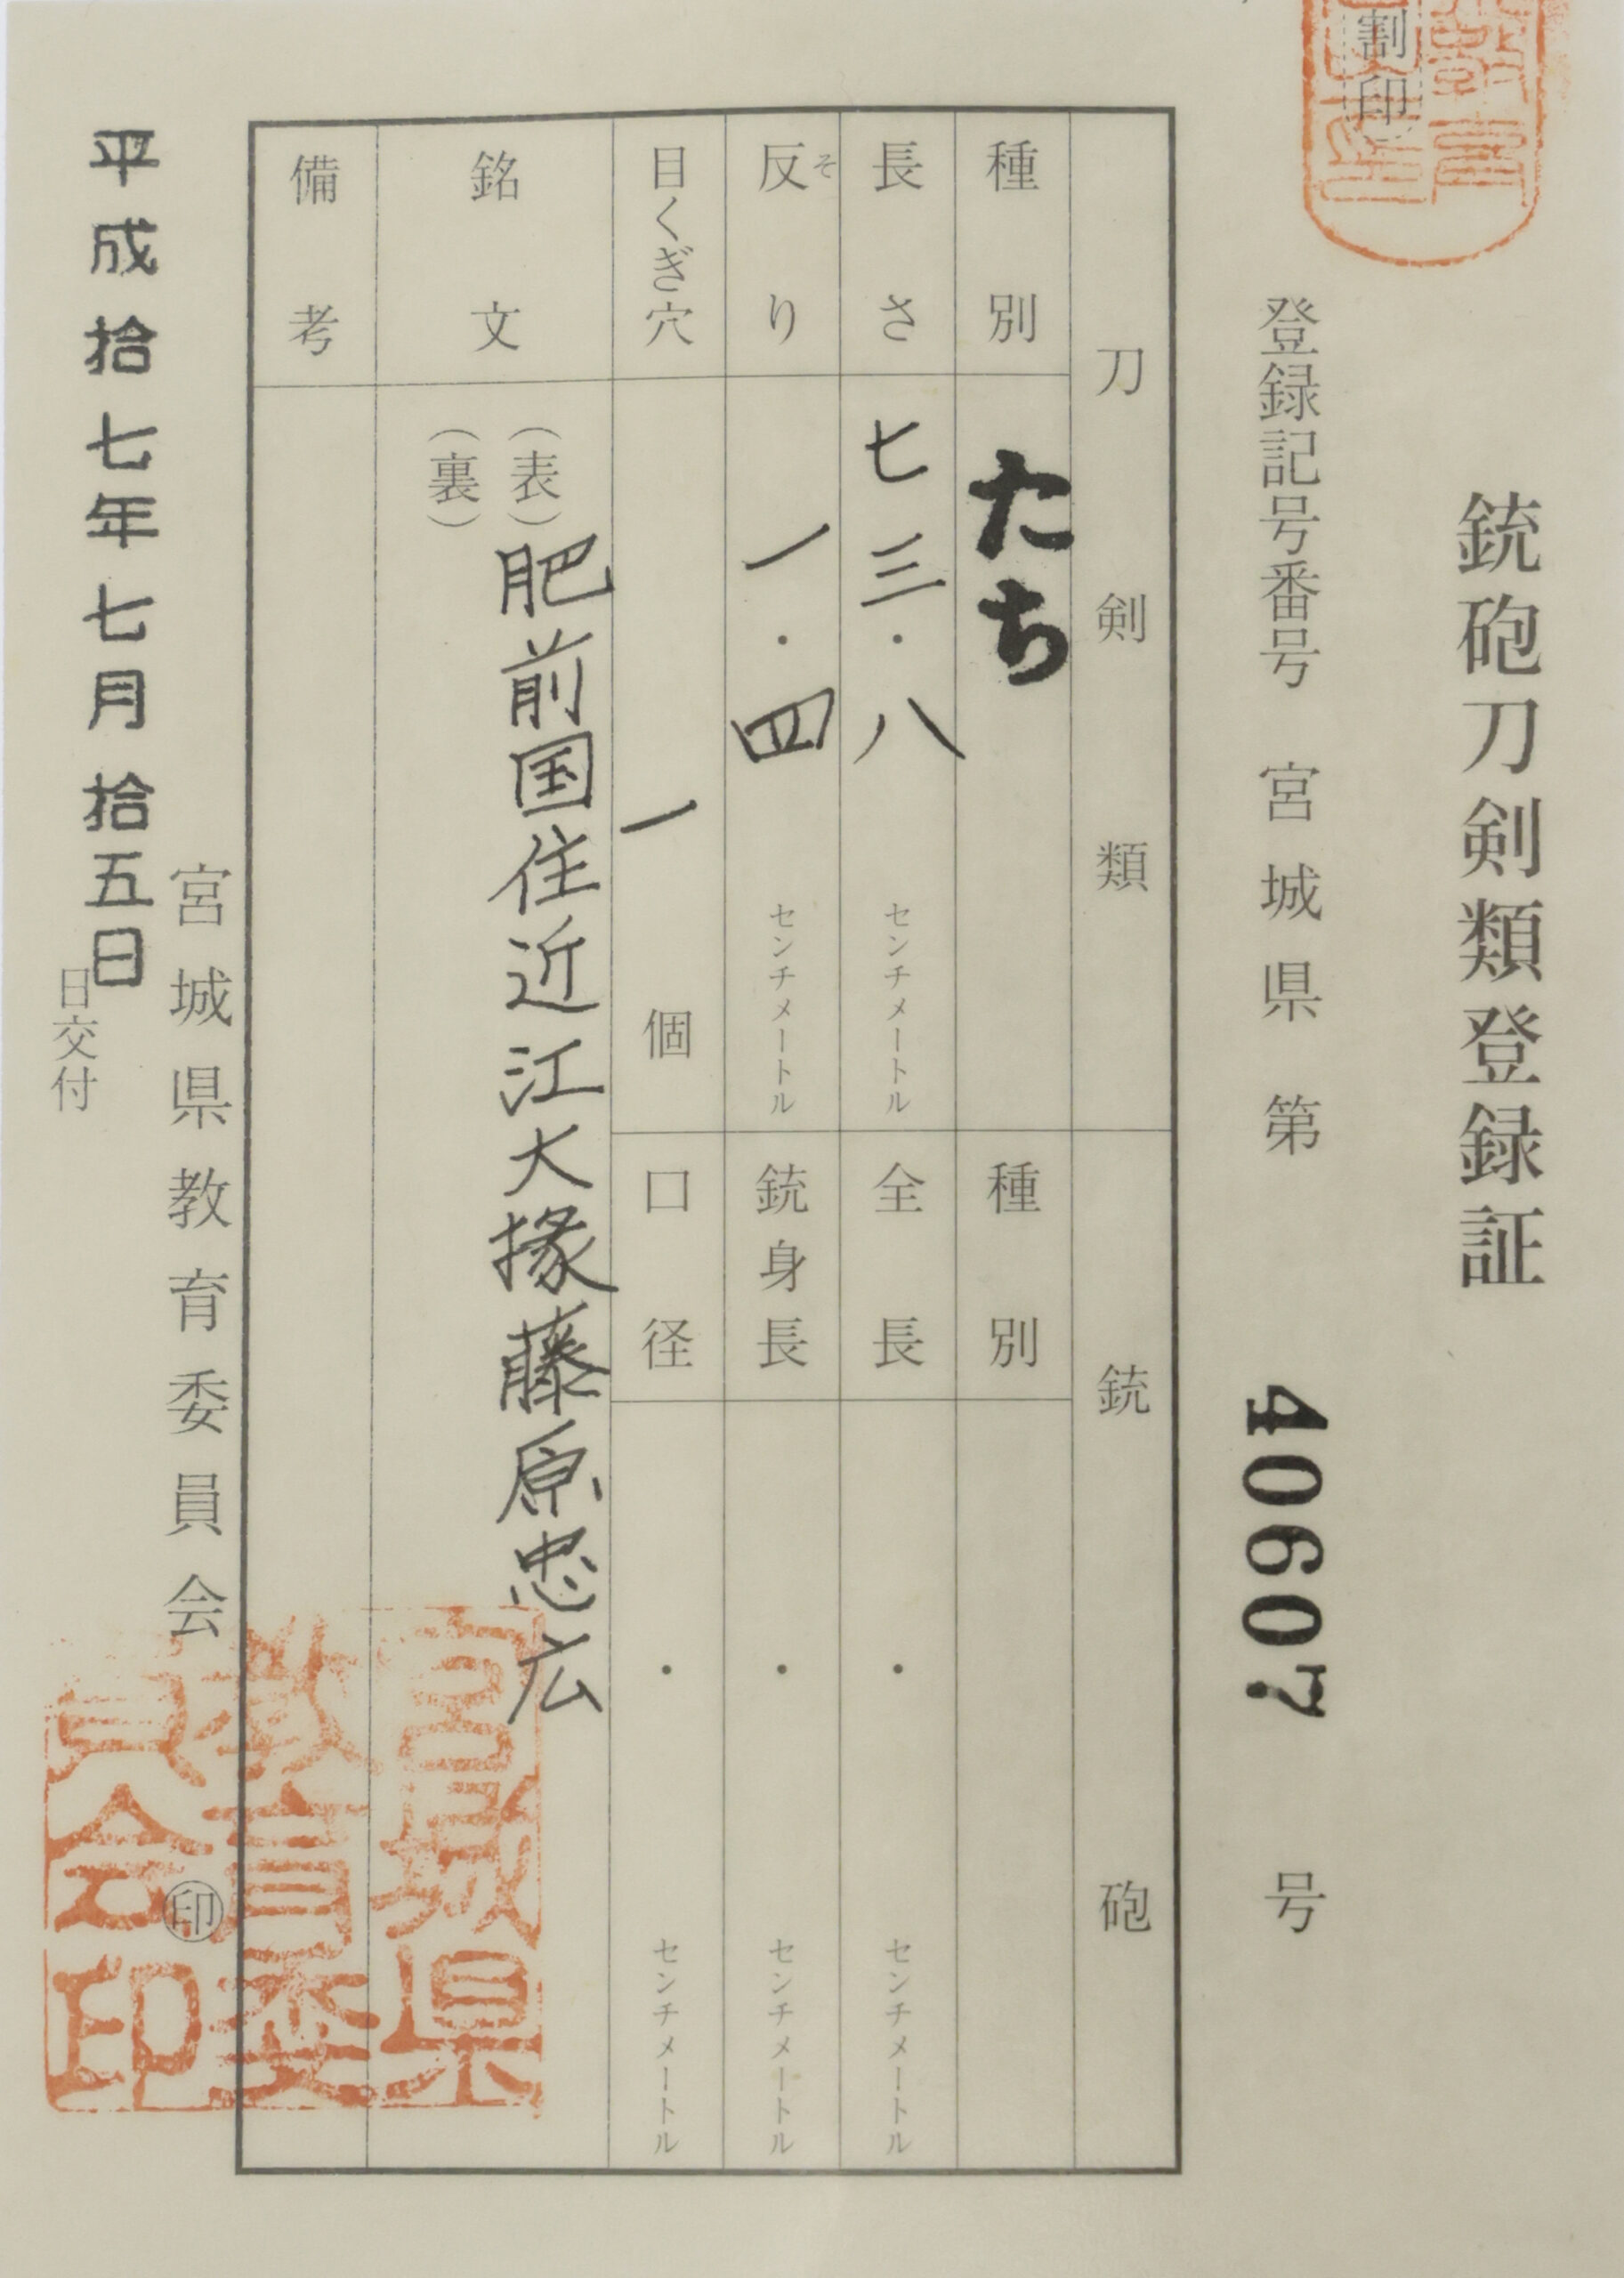 銃砲刀剣類登録証
割印
登録記号番号 宮城県 第 40607 号
刀剣類
銃砲
種別
たち
種別
長さ
七三.八センチメートル
全長
.センチメートル
反り
そ
一.四センチメートル
銃身長
.センチメートル
目くぎ穴
一個
口径
.センチメートル
銘文
(表)肥前国住近江大掾藤原忠広
(裏)
備考
宮城県教育委員会 印
宮城県
教育委
員会印
平成拾七年七月拾五日
日交付